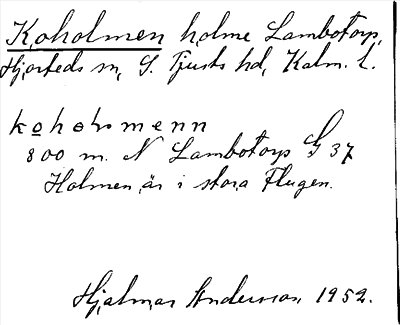 Koholmen holme Lambotorp,
Hjorteds sn, S. Tjusts hd, Kalm. l.
kohoɬmenn
800 m. N Lambotorp G 37
Holmen är i stora Flugen.
Hjalmar Andersson 1952.